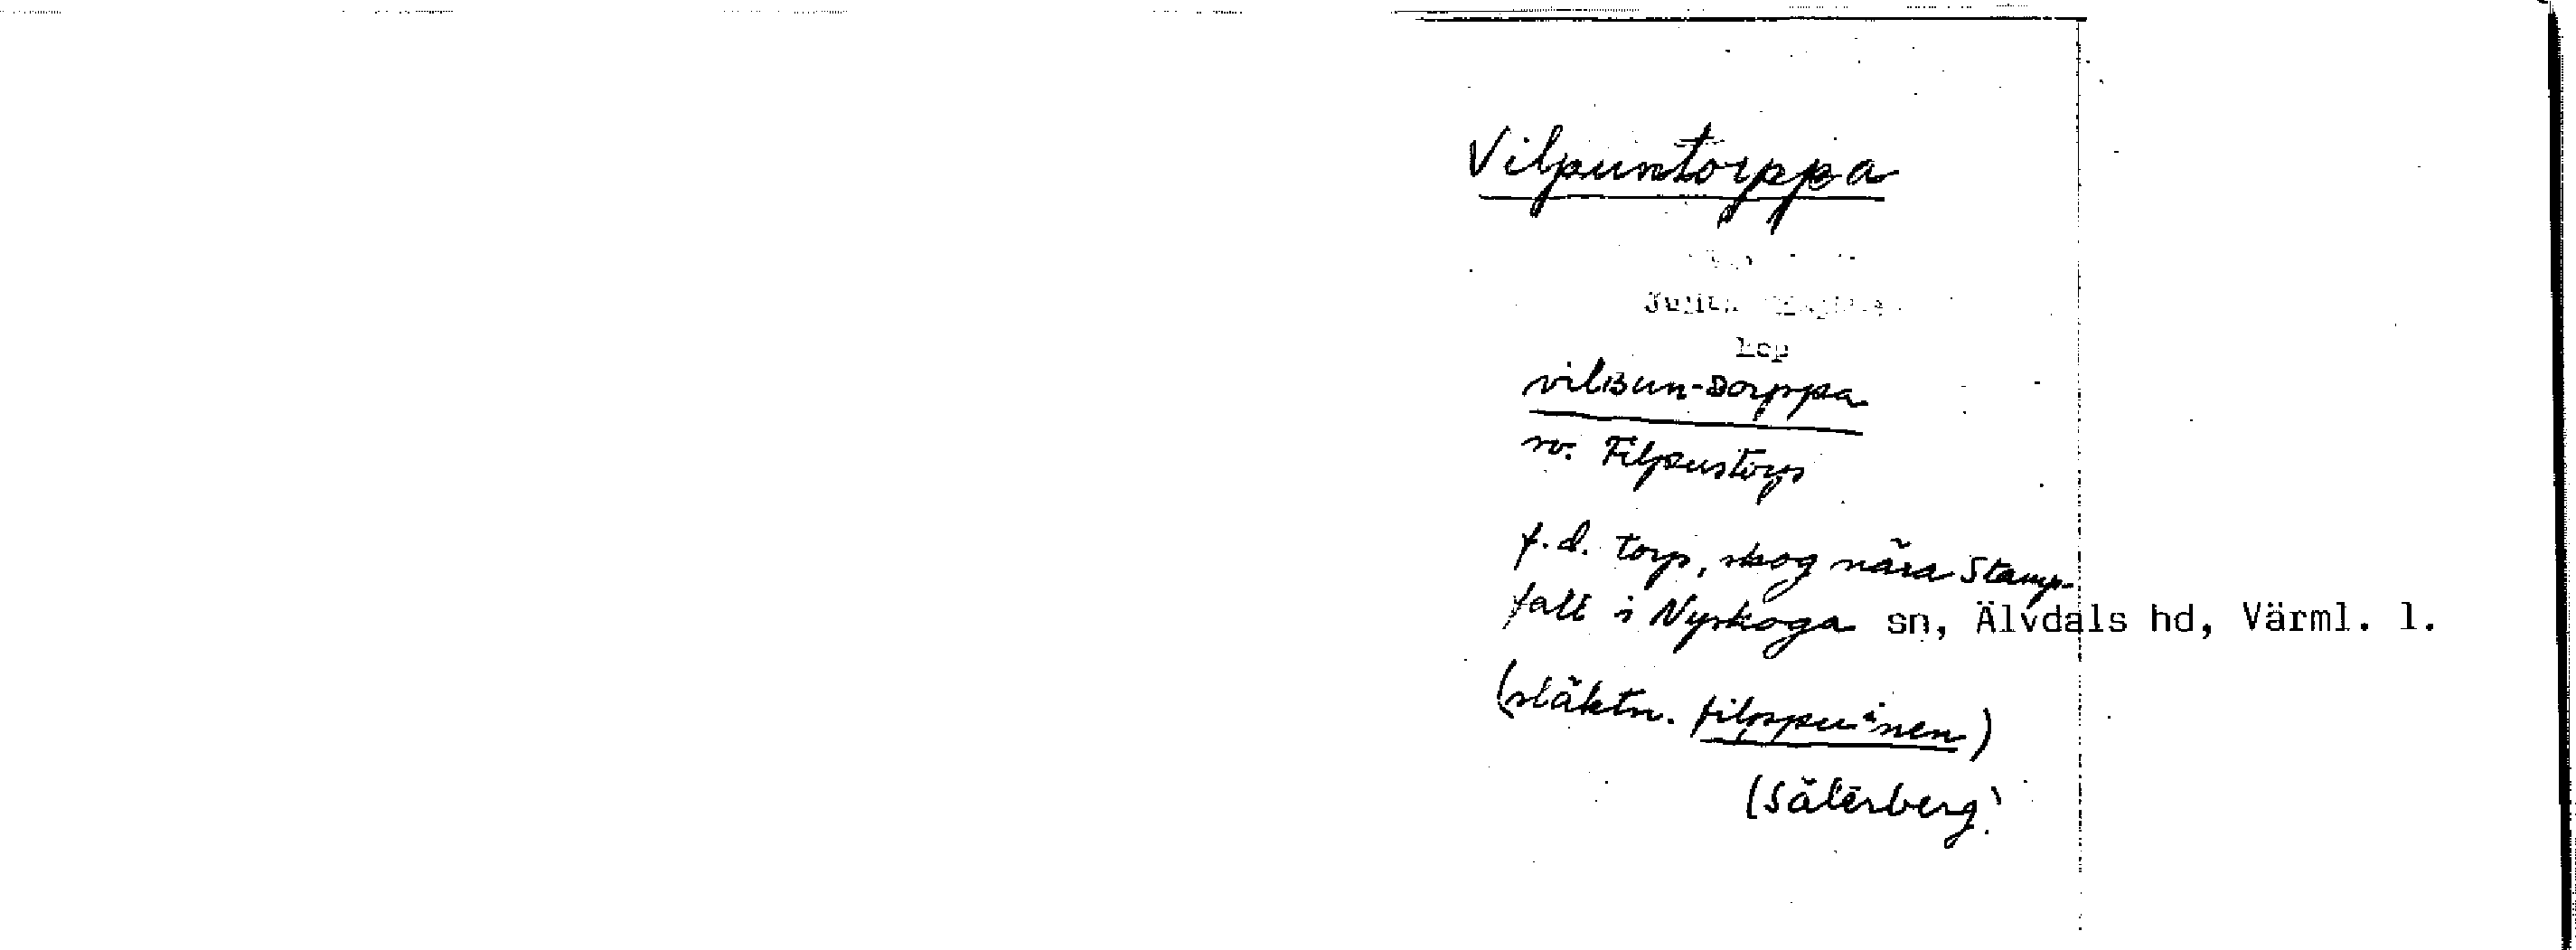 Vilpuntorppa
vilʙun-ᴅorppa
sv. Filpustorp
f.d. torp, skog nära Stamp-
fall i Nyskoga sn, Älvdals hd, Värml. l.
(släktn. filppuinen)
(Säterberg)